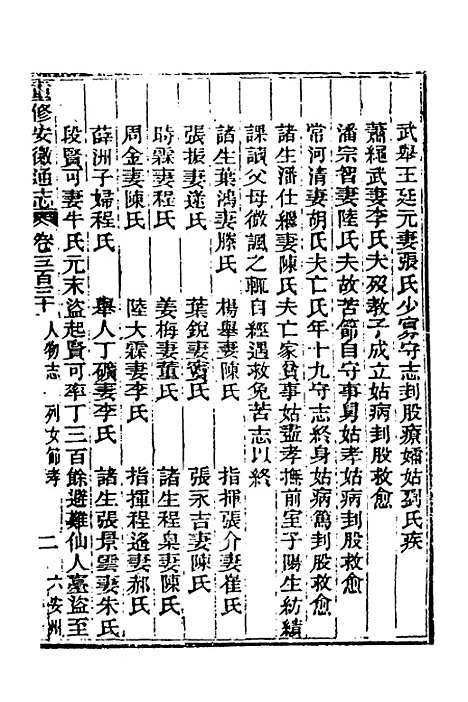 武舉王廷元妻張氏少寡守志刲股療孀姑劉氏疾
蕭繩武妻李氏夫歿教子成立姑病刲股救愈
潘宗智妻陸氏夫故苦節自守事舅姑孝姑病刲股救愈
常河清妻胡氏夫亡氏年十九守志終身姑病篤刲股救愈
諸生潘仕繼妻陳氏夫亡家貧事姑盡孝撫前室子陽生紡績
課讀父母微諷之輒自經遇救免苦志以終
諸生葉鴻妻滕氏 楊舉妻陳氏 指揮張介妻崔氏
張振妻逄氏 葉銳妻竇氏 張永吉妻陳氏
時霖妻程氏 姜梅妻董氏 諸生程臬妻陳氏
周金妻陳氏 陸大霖妻李氏 指揮程遙妻郝氏
薛洲子婦程氏 舉人丁礦妻李氏 諸生張景雲妻朱氏
段賢可妻牛氏元末盜起賢可率丁三百餘避難仙人臺盜至
重修安徽通志 卷三百三十 人物志 列女節孝 二 六安州